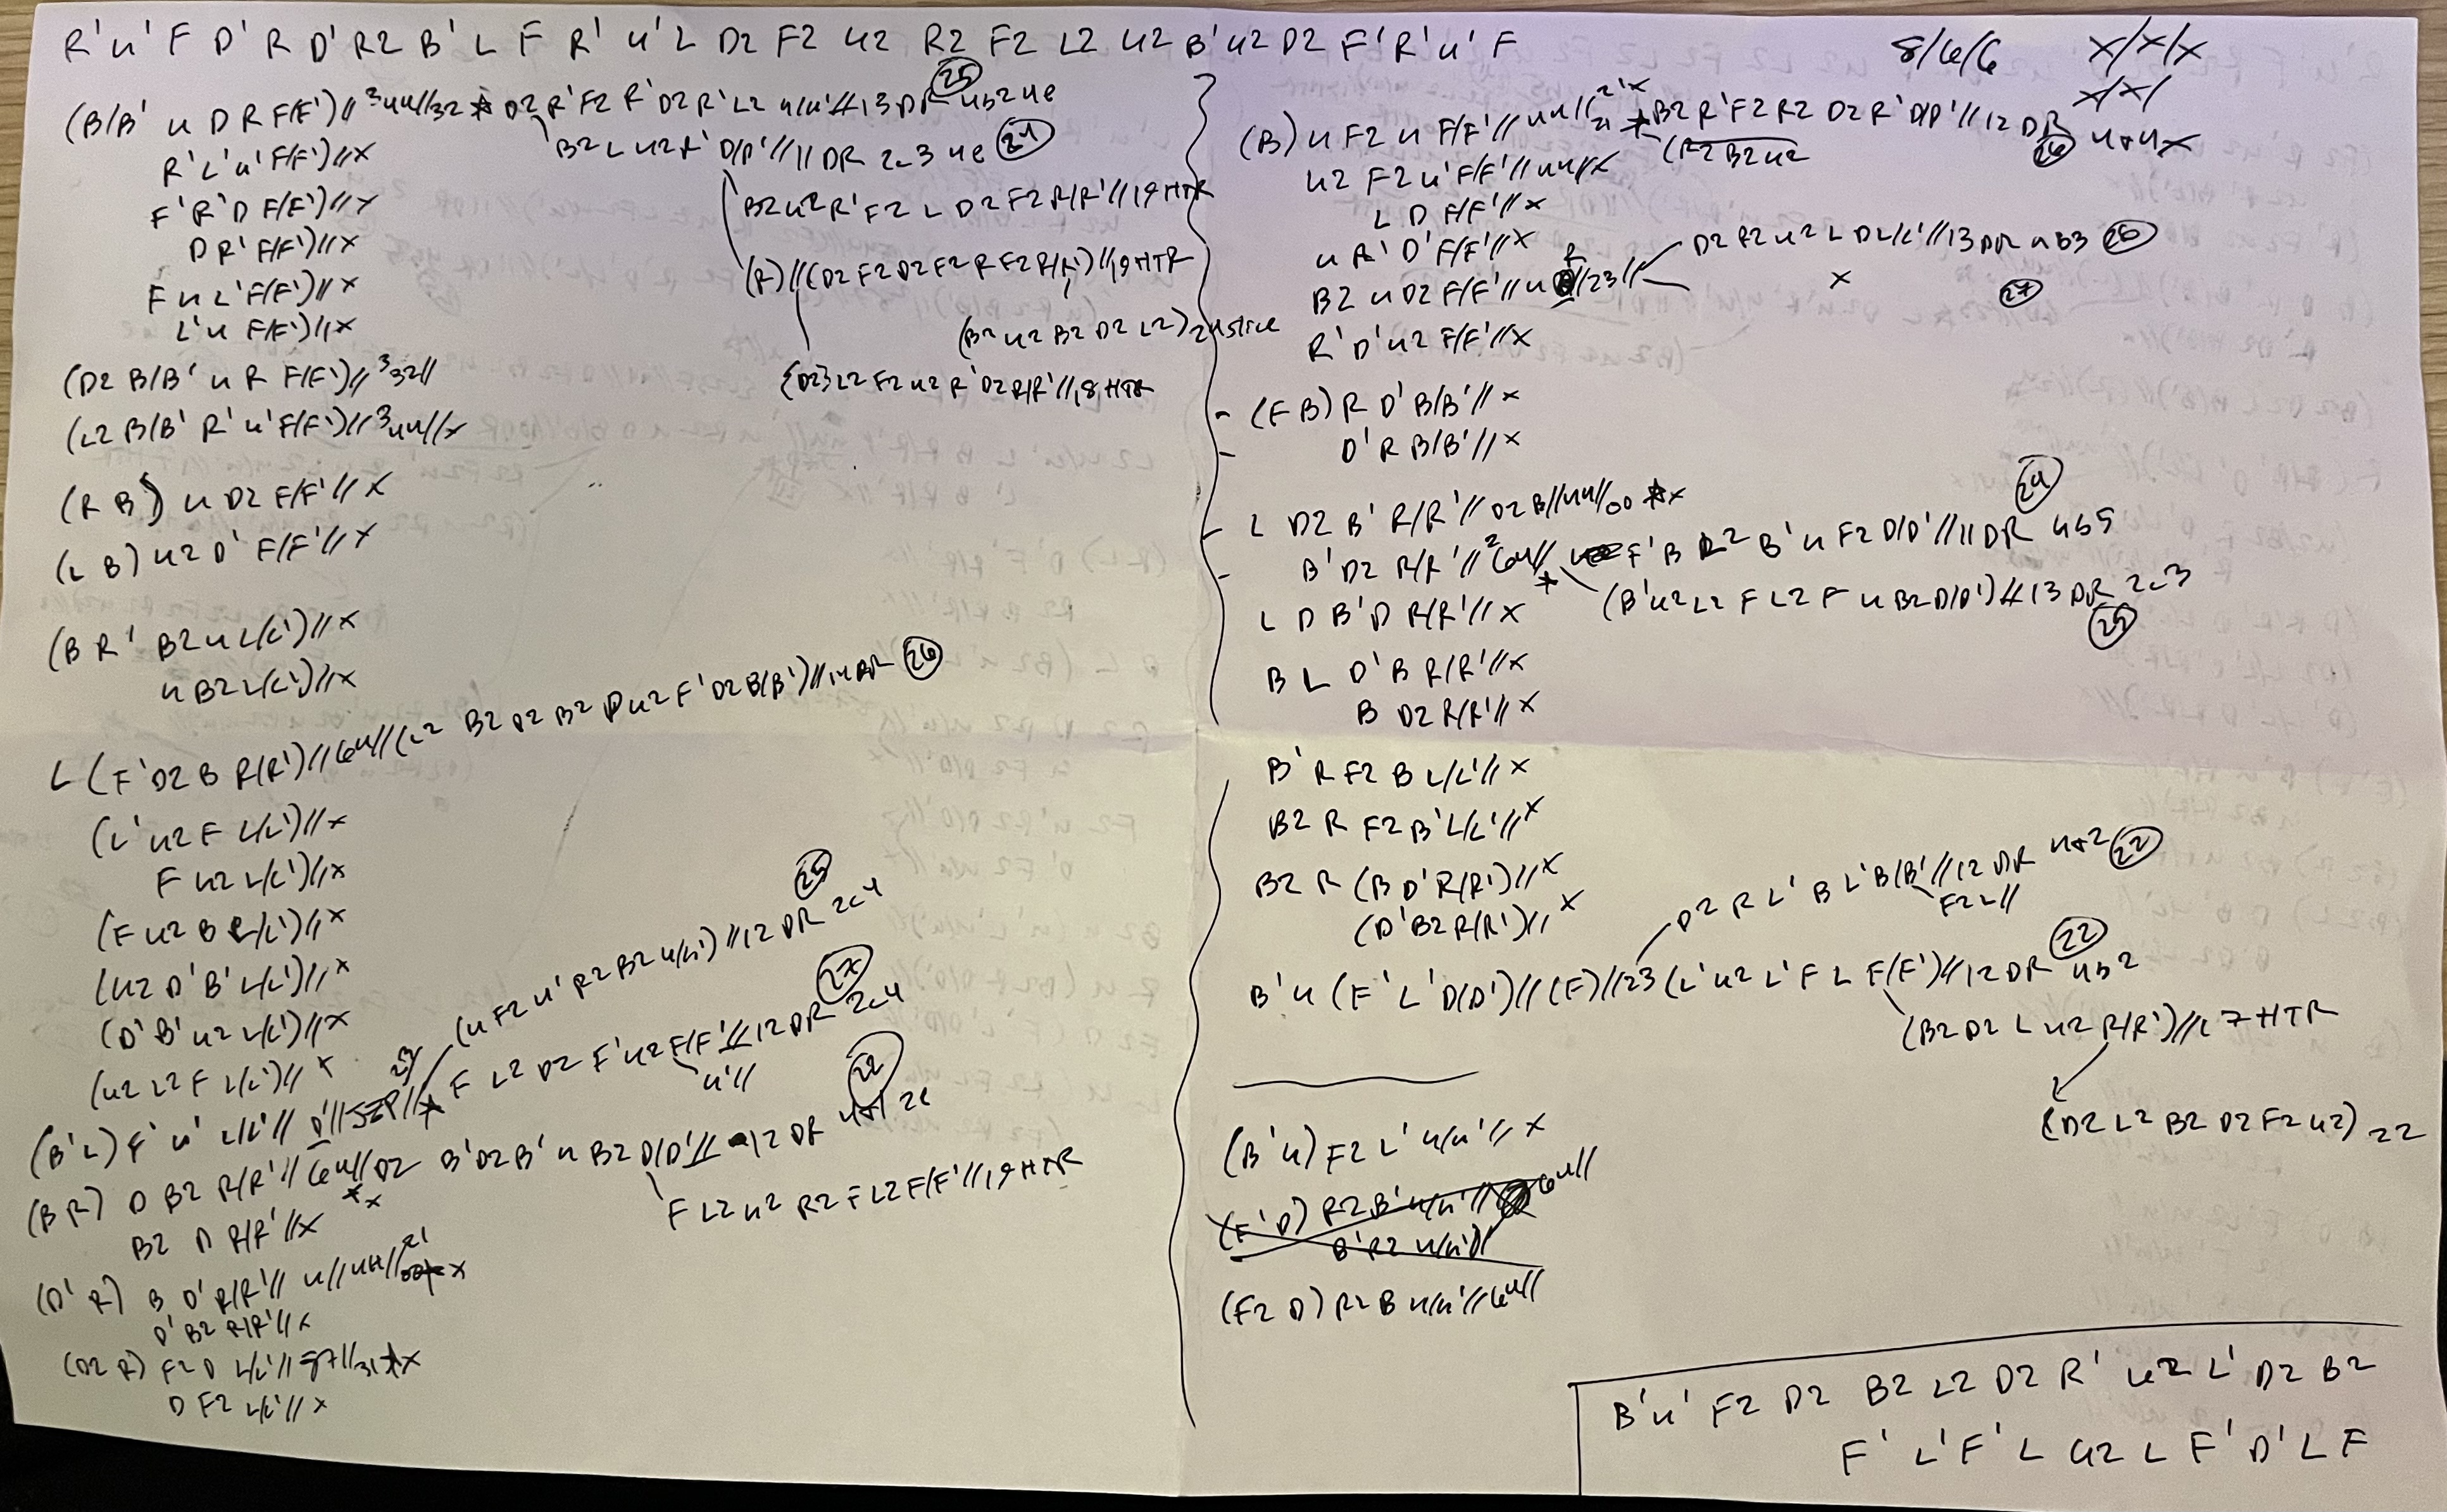 R' U' F D' R D' R2 B' L F R' U' L D2 F2 U2 R2 F2 L2 U2 B' U2 D2 F' R' U' F
8/6/6 X/X/X
X/X/
(B/B' U D R F/F') // 3 U4//32 * D2 R' F2 R' D2 R' L2 U/U' // 13 DR 4b2 4e (25)
B2 L U2 R' D/D' // 11 DR 2c3 4e (24)
R' L' U' F/F') // X
B2 U2 R' F2 L D2 F2 R/R' // 19 HTR
F' R' D F/F') // X
D R' F/F') // X
(R) // (D2 F2 D2 F2 R F2 R/R') // 19 HTR
F U L' F/F') // X
(B2 U2 B2 D2 L2) 24 slice
L' U F/F') // X
{D2} L2 F2 U2 R' D2 R/R' // 18 HTR
(D2 B/B' U R F/F') // 3 32//
(L2 B/B' R' U' F/F') // 3 U4//X
(R B) U D2 F/F' // X
(L B) U2 D' F/F' // X
(B R' B2 U L/L') // X
U B2 L/L') // X
L (F' D2 B R/R') // 64 // (L2 B2 D2 B2 D U2 F' D2 B/B') // 14 DR (26)
(L' U2 F L/L') // X
F U2 L/L') // X
(F U2 B L/L') // X
(U2 D' B' L/L') // X
(D' B' U2 L/L') // X
(U2 L2 F L/L') // X
(U F2 U' R2 B2 U/U') // 12 DR 2c4 (25)
(B' L) F' U' L/L' // D' // * F L2 D2 F' U2 F/F' // 12 DR 2c4 (27)
U' //
(B R) D B2 R/R' // 64 // D2 B' D2 B' U B2 D/D' // 12 DR 4+1 2e (22)
F L2 U2 R2 F L2 F/F' // 19 HTR
B2 D R/R' // X
(D' R) B D' R/R' // U // U4 // X
D' B2 R/R' // X
(D2 R) F2 D L/L' // // 31 * X
D F2 L/L' // X
(B) U F2 U F/F' // U4 // 21 * B2 R' F2 R2 D2 R' D/D' // 12 DR (26) 4+4 X
(R2 B2 U2
U2 F2 U' F/F' // U4 // X
L D F/F' // X
U R' D' F/F' // X
B2 U D2 F/F' // U R // 23 // D2 R2 U2 L D L/L' // 13 DR 4b3 (26)
X (27)
R' D' U2 F/F' // X
- (F B) R D' B/B' // X
- D' R B/B' // X
- L D2 B' R/R' // D2 B // U4 // 00 * X
- B' D2 R/R' // 2 64 // F' B L2 B' U F2 D/D' // 11 DR 4b5 (24)
* (B' U2 L2 F L2 F U B2 D/D') // 13 DR 2c3 (25)
L D B' D R/R' // X
B L D' B R/R' // X
B D2 R/R' // X
B' R F2 B L/L' // X
B2 R F2 B' L/L' // X
B2 R (B D' R/R') // X
(D' B2 R/R') // X
D2 R L' B L' B/B' // 12 DR 4+2 (22)
F2 L //
B' U (F' L' D/D') // (F) // 23 (L' U2 L' F L F/F') // 12 DR 4b2 (22)
(B2 D2 L U2 R/R') // 17 HTR
(D2 L2 B2 D2 F2 U2) 22
(B' U) F2 L' U/U' // X
(F' D) R2 B' U/U' // 64 //
B' R2 U/U'
(F2 D) R2 B U/U' // 64 //
B' U' F2 D2 B2 L2 D2 R' U2 L' D2 B2
F' L' F' L U2 L F' D' L F